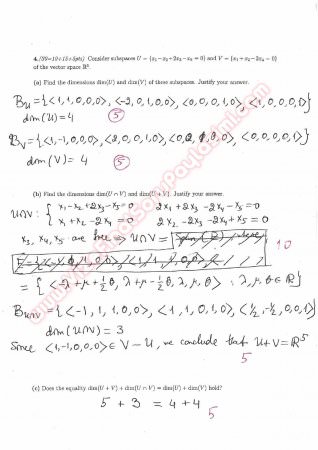 4. (30=10+15+5pts) Consider subspaces U = {x₁ - x₂ + 2x₃ - x₅ = 0} and V = {x₁ + x₂ - 2x₄ = 0}
of the vector space ℝ⁵.
(a) Find the dimensions dim(U) and dim(V) of these subspaces. Justify your answer.
B_U = {<1,1,0,0,0>, <-2,0,1,0,0>, <0,0,0,1,0>, <1,0,0,0,1>}
dim(U) = 4
5
B_V = {<1,-1,0,0,0>, <2,0,0,1,0>, <0,0,1,0,0>, <0,0,0,0,1>}
dim(V) = 4
5
(b) Find the dimensions dim(U ∩ V) and dim(U + V). Justify your answer.
U∩V: { x₁ - x₂ + 2x₃ - x₅ = 0 2x₁ + 2x₃ - 2x₄ - x₅ = 0
x₁ + x₂ - 2x₄ = 0 2x₂ - 2x₃ - 2x₄ + x₅ = 0
x₃, x₄, x₅ are free ⇒ U∩V =
10
= {<-λ+μ+½θ, λ+μ-½θ, λ, μ, θ> : λ, μ, θ ∈ ℝ}
B_U∩V = {<-1, 1, 1, 0, 0>, <1, 1, 0, 1, 0>, <½, -½, 0, 0, 1>}
dim(U∩V) = 3
Since <1,-1,0,0,0> ∈ V - U, we conclude that U+V = ℝ⁵
5
(c) Does the equality dim(U + V) + dim(U ∩ V) = dim(U) + dim(V) hold?
5 + 3 = 4 + 4
5